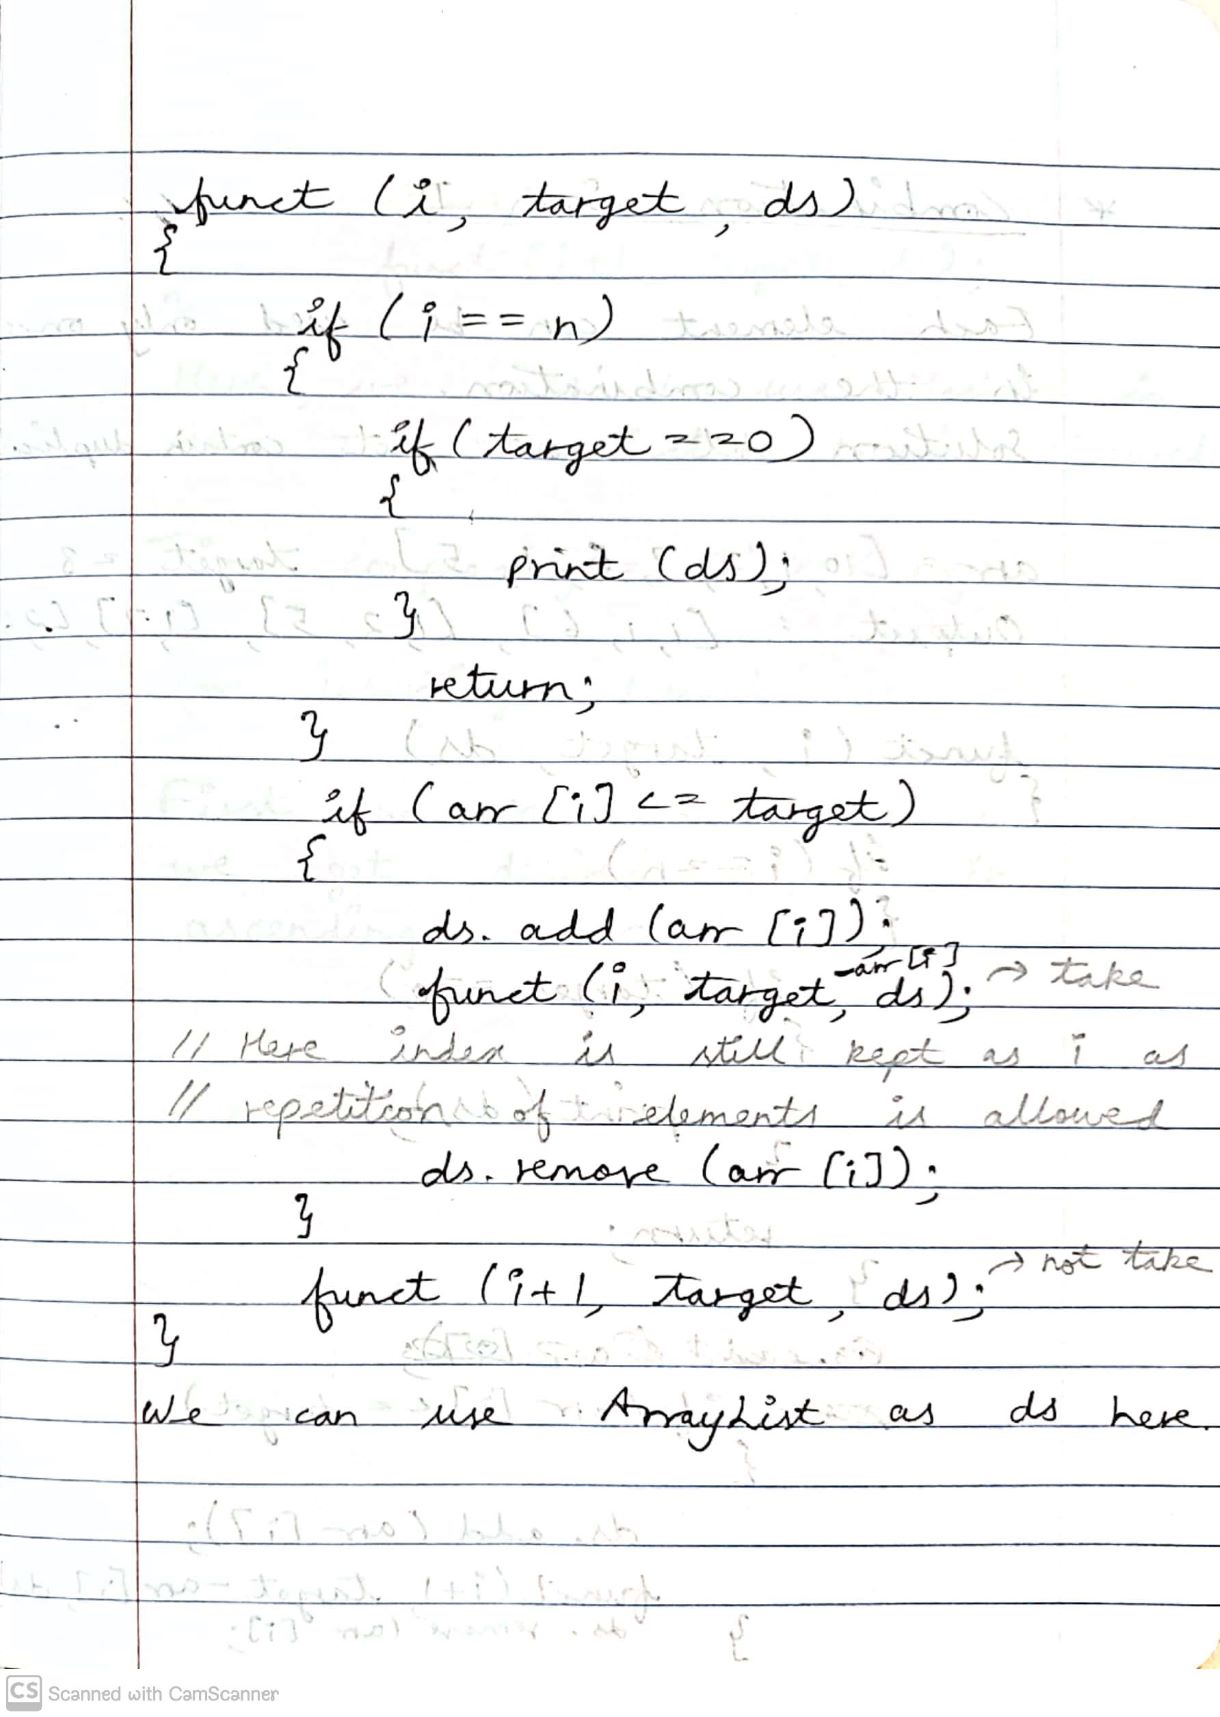 funct (i, target, ds)
{
if (i == n)
{
if (target ==0)
{
print (ds);
}
return;
}
if (arr [i] <= target)
{
ds. add (arr [i]);
funct (i, target -arr [i], ds); → take
// Here index is still kept as i as
// repetition of elements is allowed
ds. remove (arr [i]);
}
funct (i+1, target, ds); → not take
}
We can use ArrayList as ds here.
CS Scanned with CamScanner